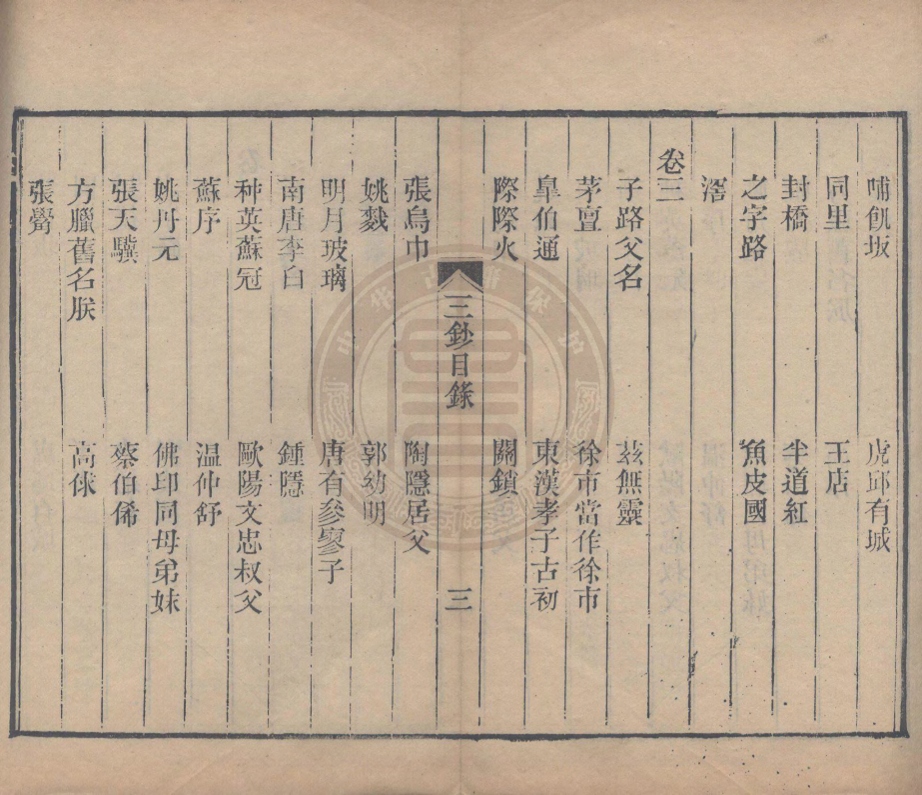 哺飢坂　虎邱有城
同里　王店
封橋　半道紅
之字路　魚皮國
滘
卷三
子路父名　茲無靈
茅亶　徐市當作徐巿
臯伯通　東漢孝子古初
際際火　關鎖
三鈔目錄　三
張烏巾　陶隱居父
姚㦤　郭幼明
明月玻璃　唐有參寥子
南唐李白　鍾隱
种英蘇冠　歐陽文忠叔父
蘇序　温仲舒
姚丹元　佛印同母弟妹
張天驥　蔡伯俙
方臘舊名朕　高俅
張觷